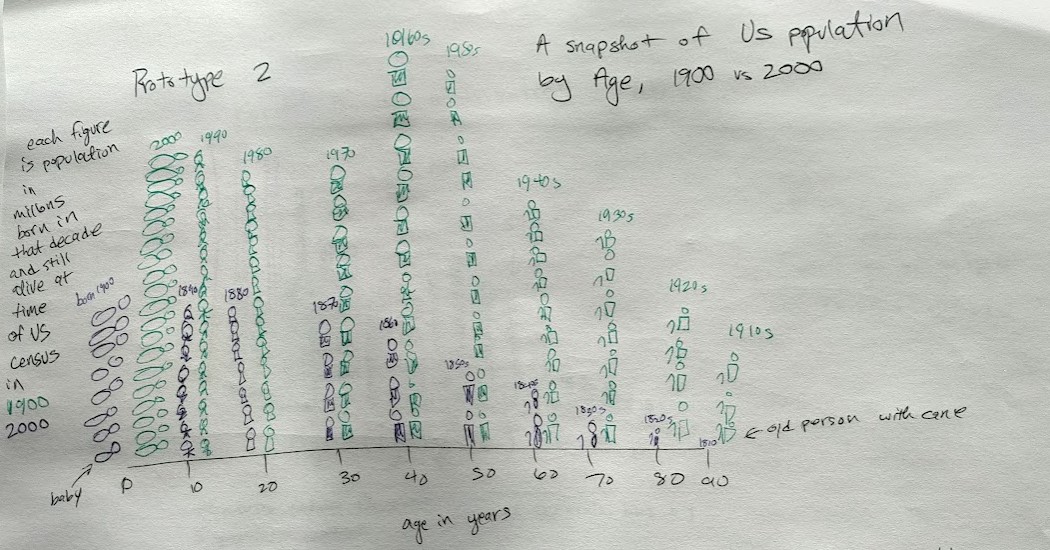 A snapshot of Us population
by Age, 1900 vs 2000
Prototype 2
each figure
is population
in
millions
born in
that decade
and still
alive at
time
of US
census
in
1900
2000
2000
1990
1980
1970
1960s
1950s
1940s
1930s
1920s
1910s
born 1900
1890
1880
1870
1860
1850s
1840s
1830s
1820s
1810
← old person with cane
baby
0 10 20 30 40 50 60 70 80 90
age in years